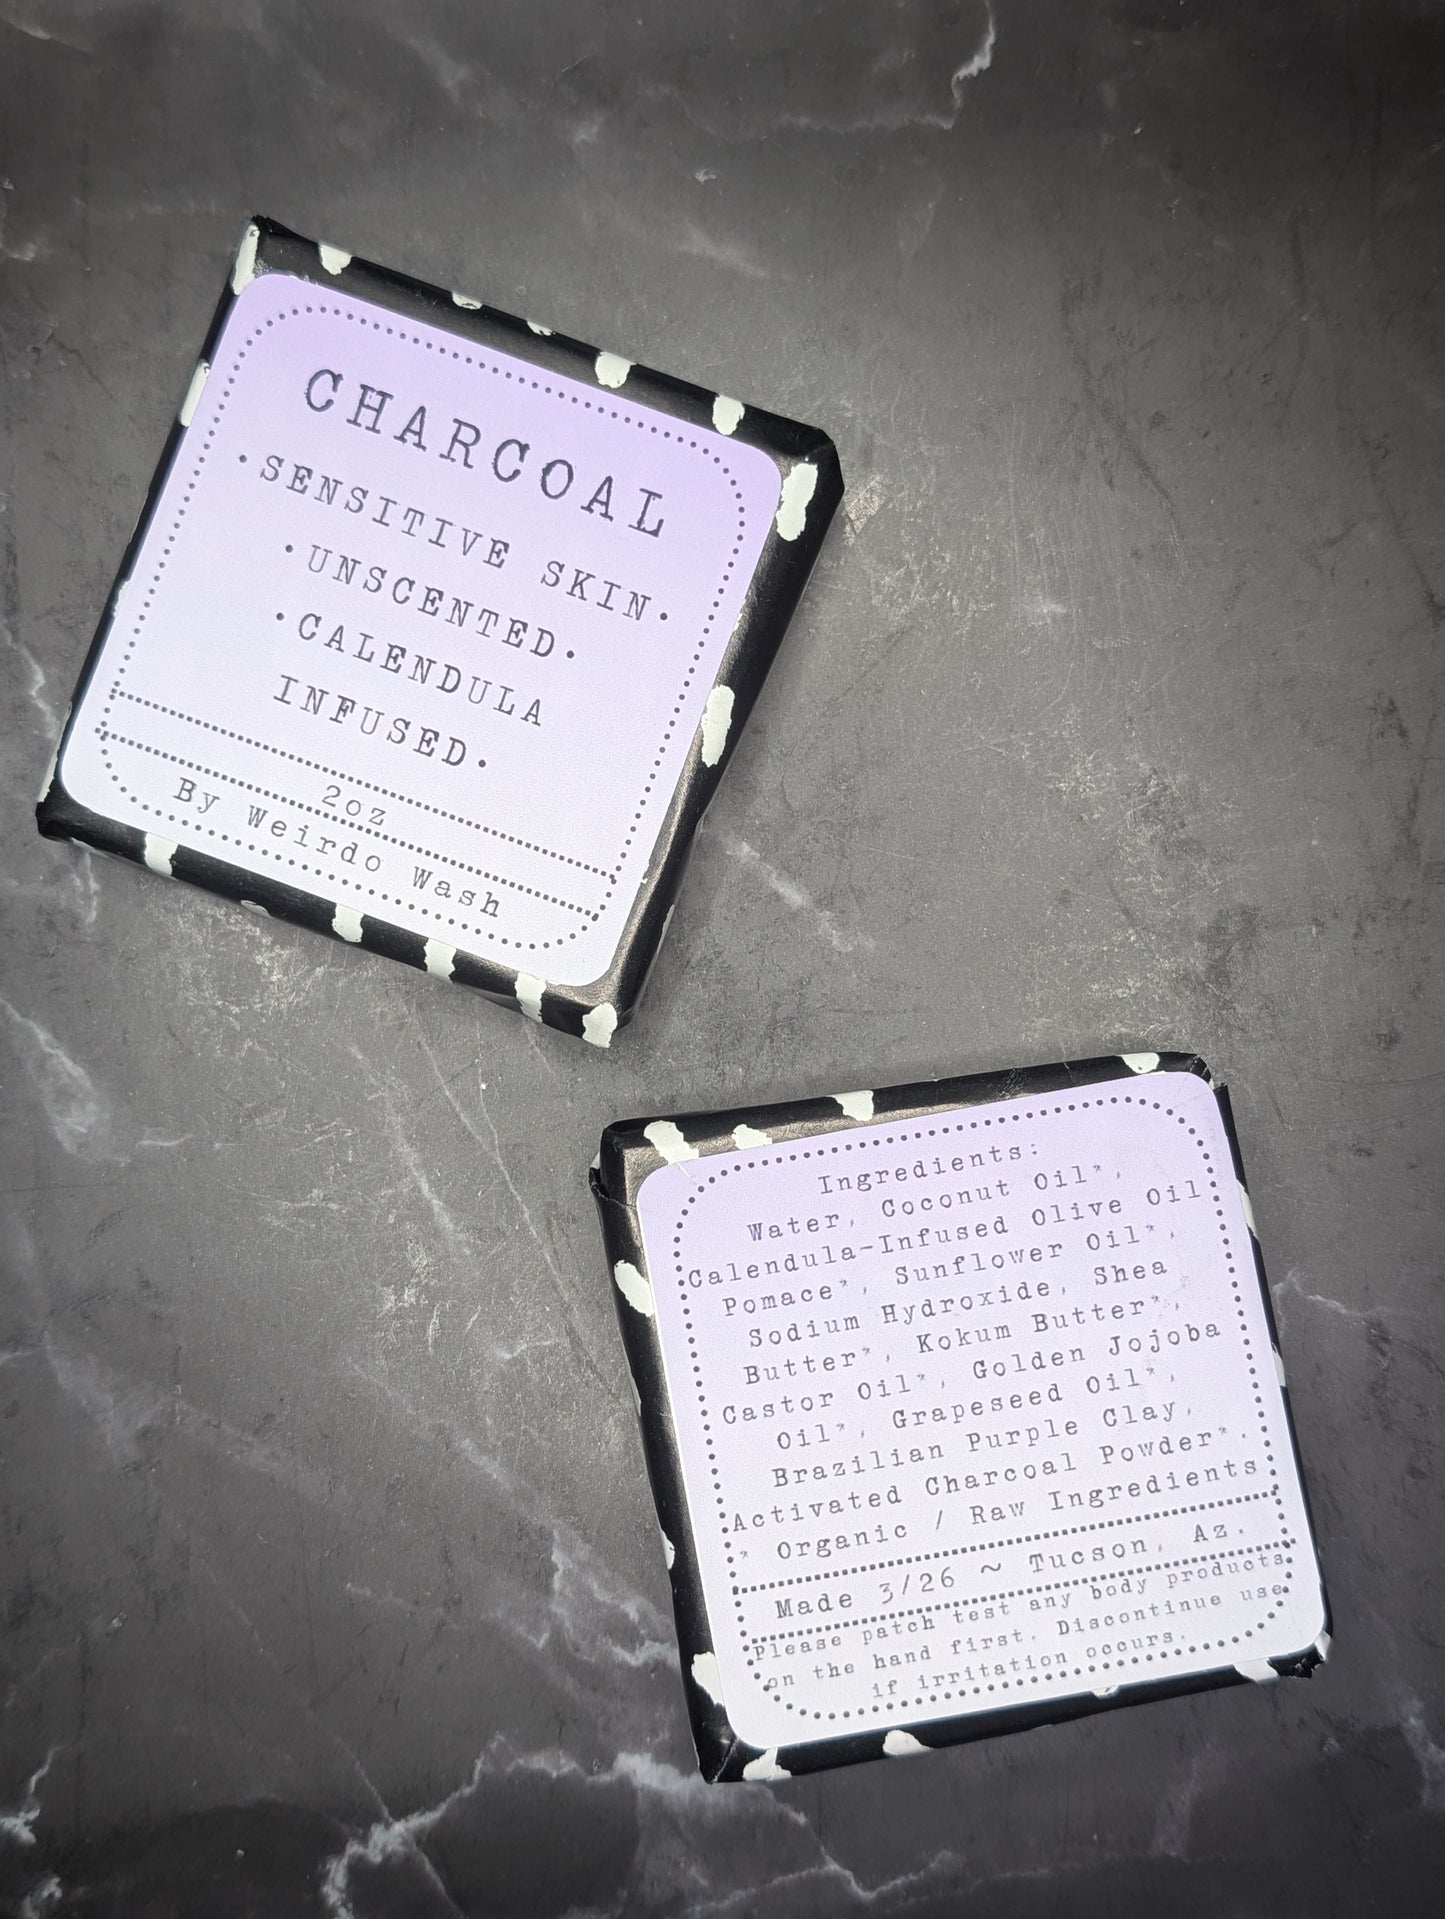 CHARCOAL
·SENSITIVE SKIN·
·UNSCENTED·
·CALENDULA
INFUSED·
2oz
By Weirdo Wash
Ingredients:
Water, Coconut Oil*,
Calendula-Infused Olive Oil
Pomace*, Sunflower Oil*,
Sodium Hydroxide, Shea
Butter*, Kokum Butter*,
Castor Oil*, Golden Jojoba
Oil*, Grapeseed Oil*,
Brazilian Purple Clay,
Activated Charcoal Powder*.
* Organic / Raw Ingredients
Made 3/26 ~ Tucson, Az.
Please patch test any body products
on the hand first. Discontinue use
if irritation occurs.